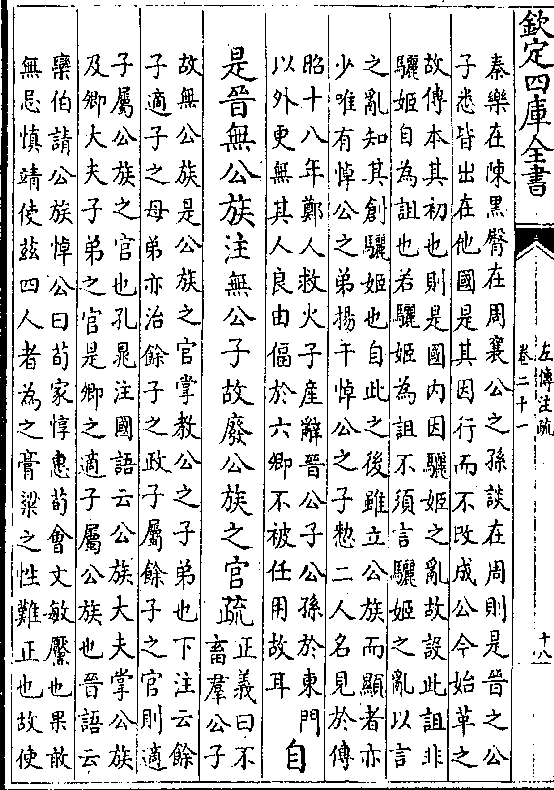 欽定四庫全書
左傳注疏
卷二十一
十八
秦樂在陳黑臀在周襄公之孫談在周則是晉之公
子悉皆出在他國是其因行而不改成公今始革之
故傳本其初也則是國内因驪姬之亂故設此詛非
驪姬自為詛也若驪姬為詛不須言驪姬之亂以言
之亂知其創驪姬也自此之後雖立公族而顯者亦
少唯有悼公之弟揚干悼公之子憖二人名見於傳
昭十八年鄭人救火子產辭晉公子公孫於東門
以外更無其人良由偪於六卿不被任用故耳
自
是晉無公族注無公子故廢公族之官疏
正義曰不
畜羣公子
故無公族是公族之官掌教公之子弟也下注云餘
子適子之母弟亦治餘子之政子屬餘子之官則適
子屬公族之官也孔晁注國語云公族大夫掌公族
及卿大夫子弟之官是卿之適子屬公族也晉語云
欒伯請公族悼公曰荀家惇惠荀會文敏黶也果敢
無忌慎靖使兹四人者為之膏粱之性難正也故使